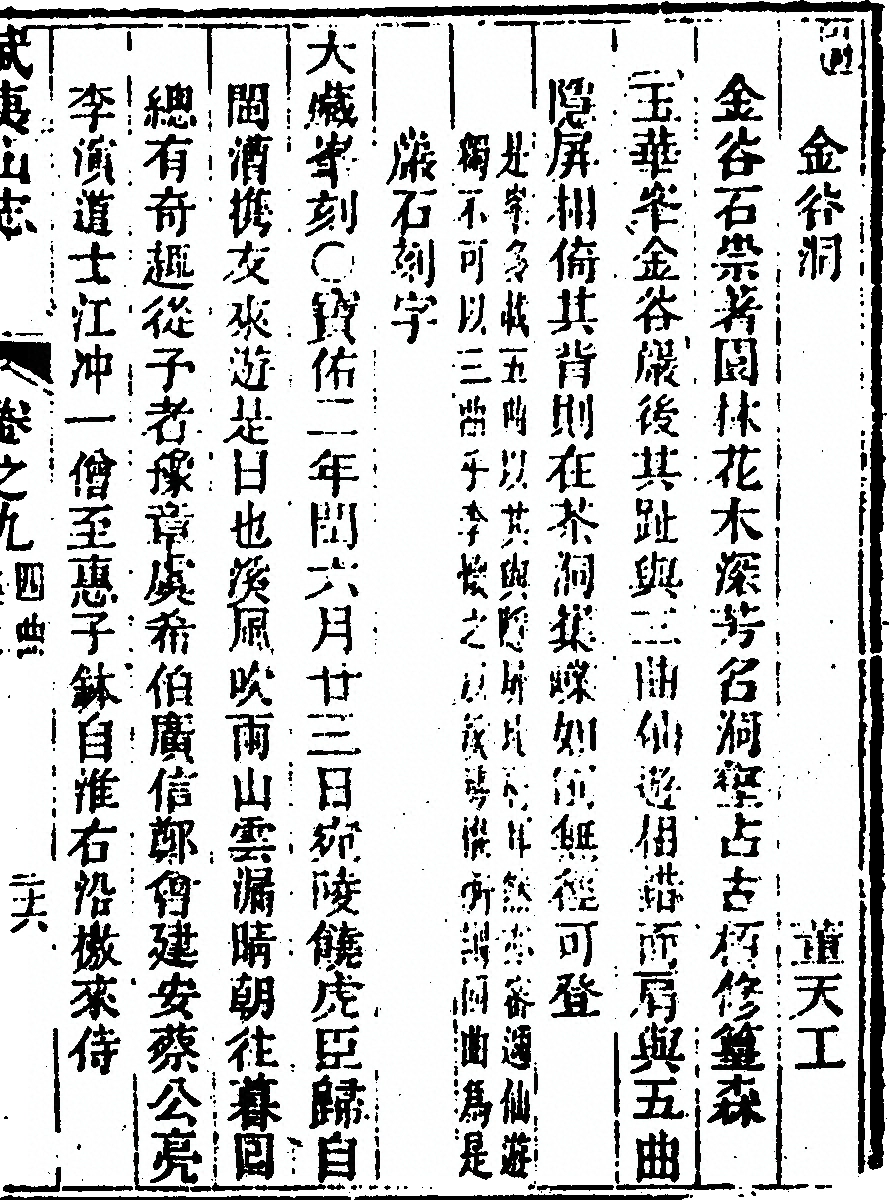 金谷洞　董天工
金谷石崇著園林花木深芳名洞壑占古栢修篁森
玉華峯金谷巖後其趾與三曲仙遊相錯而肩與五曲
隱屏相倚其背則在茶洞巢嶫如削無徑可登
是峯多載五曲以其與隱屏 然亦審邇仙遊
獨不可以三曲乎李 之 所謂 曲為是
巖石刻字
大藏峯刻○寶佑二年閏六月廿三日宛陵饒虎臣歸自
閩漕携友來遊是日也溪風吹雨山雲漏晴朝往暮囘
總有奇趣從子者豫章虞希伯廣信鄭會建安蔡公亮
李演道士江冲一僧至惠子鉢自淮右沿檄來侍
武夷山志　卷之九　四曲　二十六